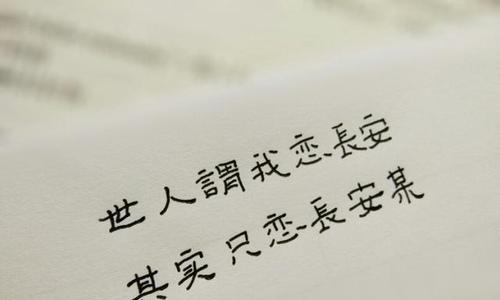 世人謂我恋長安
其实只恋長安某